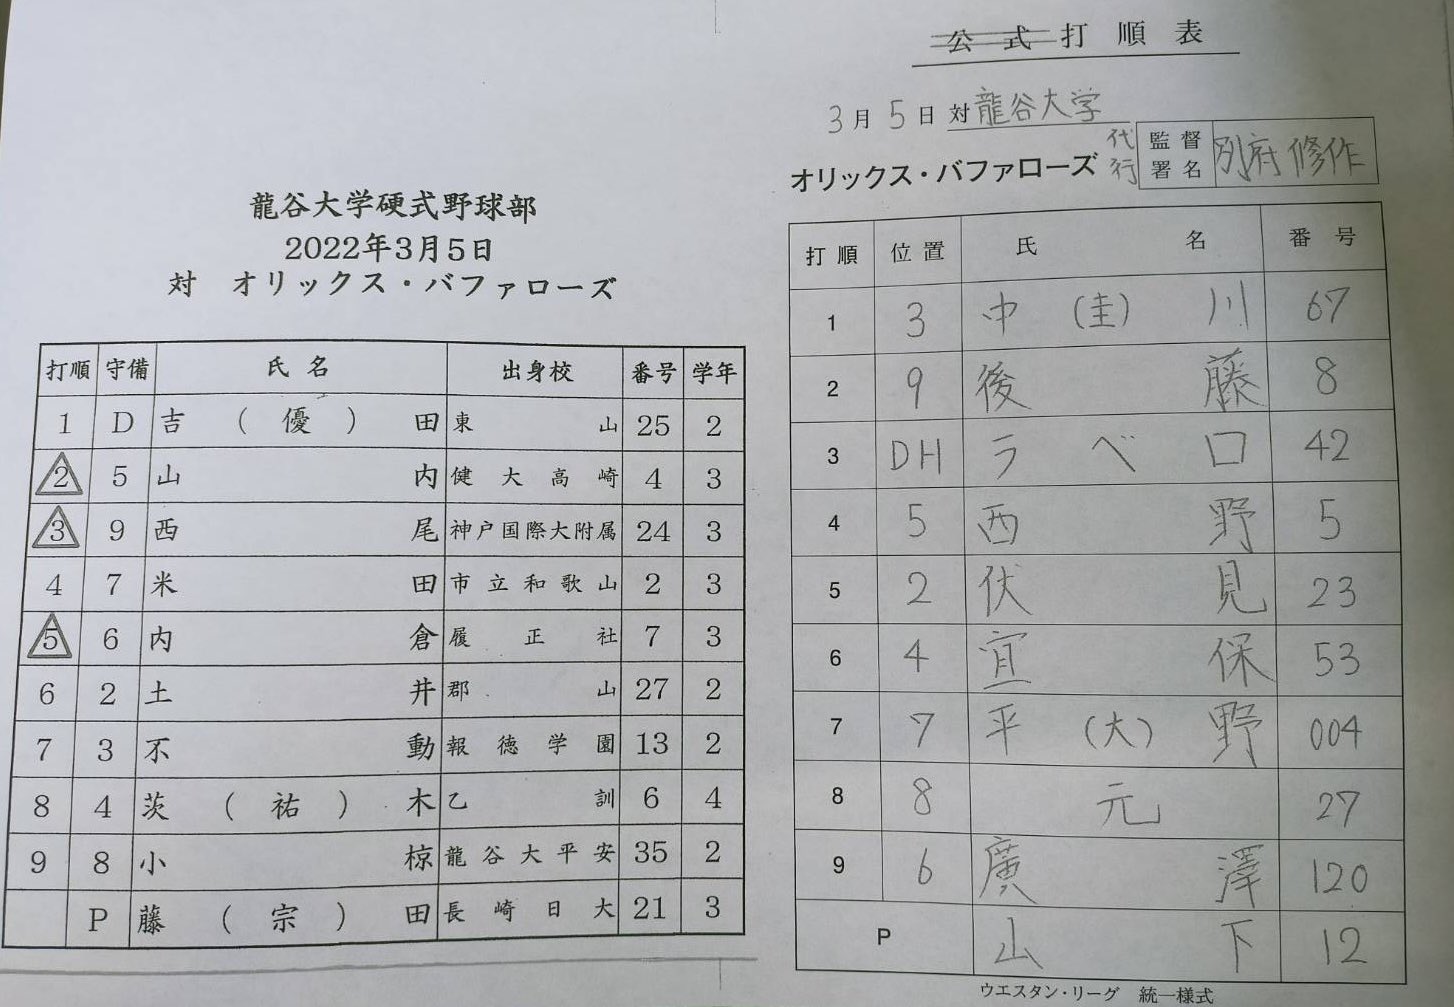 龍谷大学硬式野球部
2022年3月5日
対 オリックス・バファローズ
打順 守備 氏名 出身校 番号 学年
1 D 吉(優)田 東山 25 2
2 5 山内 健大高崎 4 3
3 9 西尾 神戸国際大附属 24 3
4 7 米田 市立和歌山 2 3
5 6 内倉 履正社 7 3
6 2 土井 郡山 27 2
7 3 不動 報徳学園 13 2
8 4 茨(祐)木 乙訓 6 4
9 8 小椋 龍谷大平安 35 2
P 藤(宗)田 長崎日大 21 3
公式打順表
3月5日 対 龍谷大学
オリックス・バファローズ 代行 監督署名 別府修作
打順 位置 氏名 番号
1 3 中(圭)川 67
2 9 後藤 8
3 DH ラベロ 42
4 5 西野 5
5 2 伏見 23
6 4 宜保 53
7 7 平(大)野 004
8 8 元 27
9 6 廣澤 120
P 山下 12
ウエスタン・リーグ 統一様式